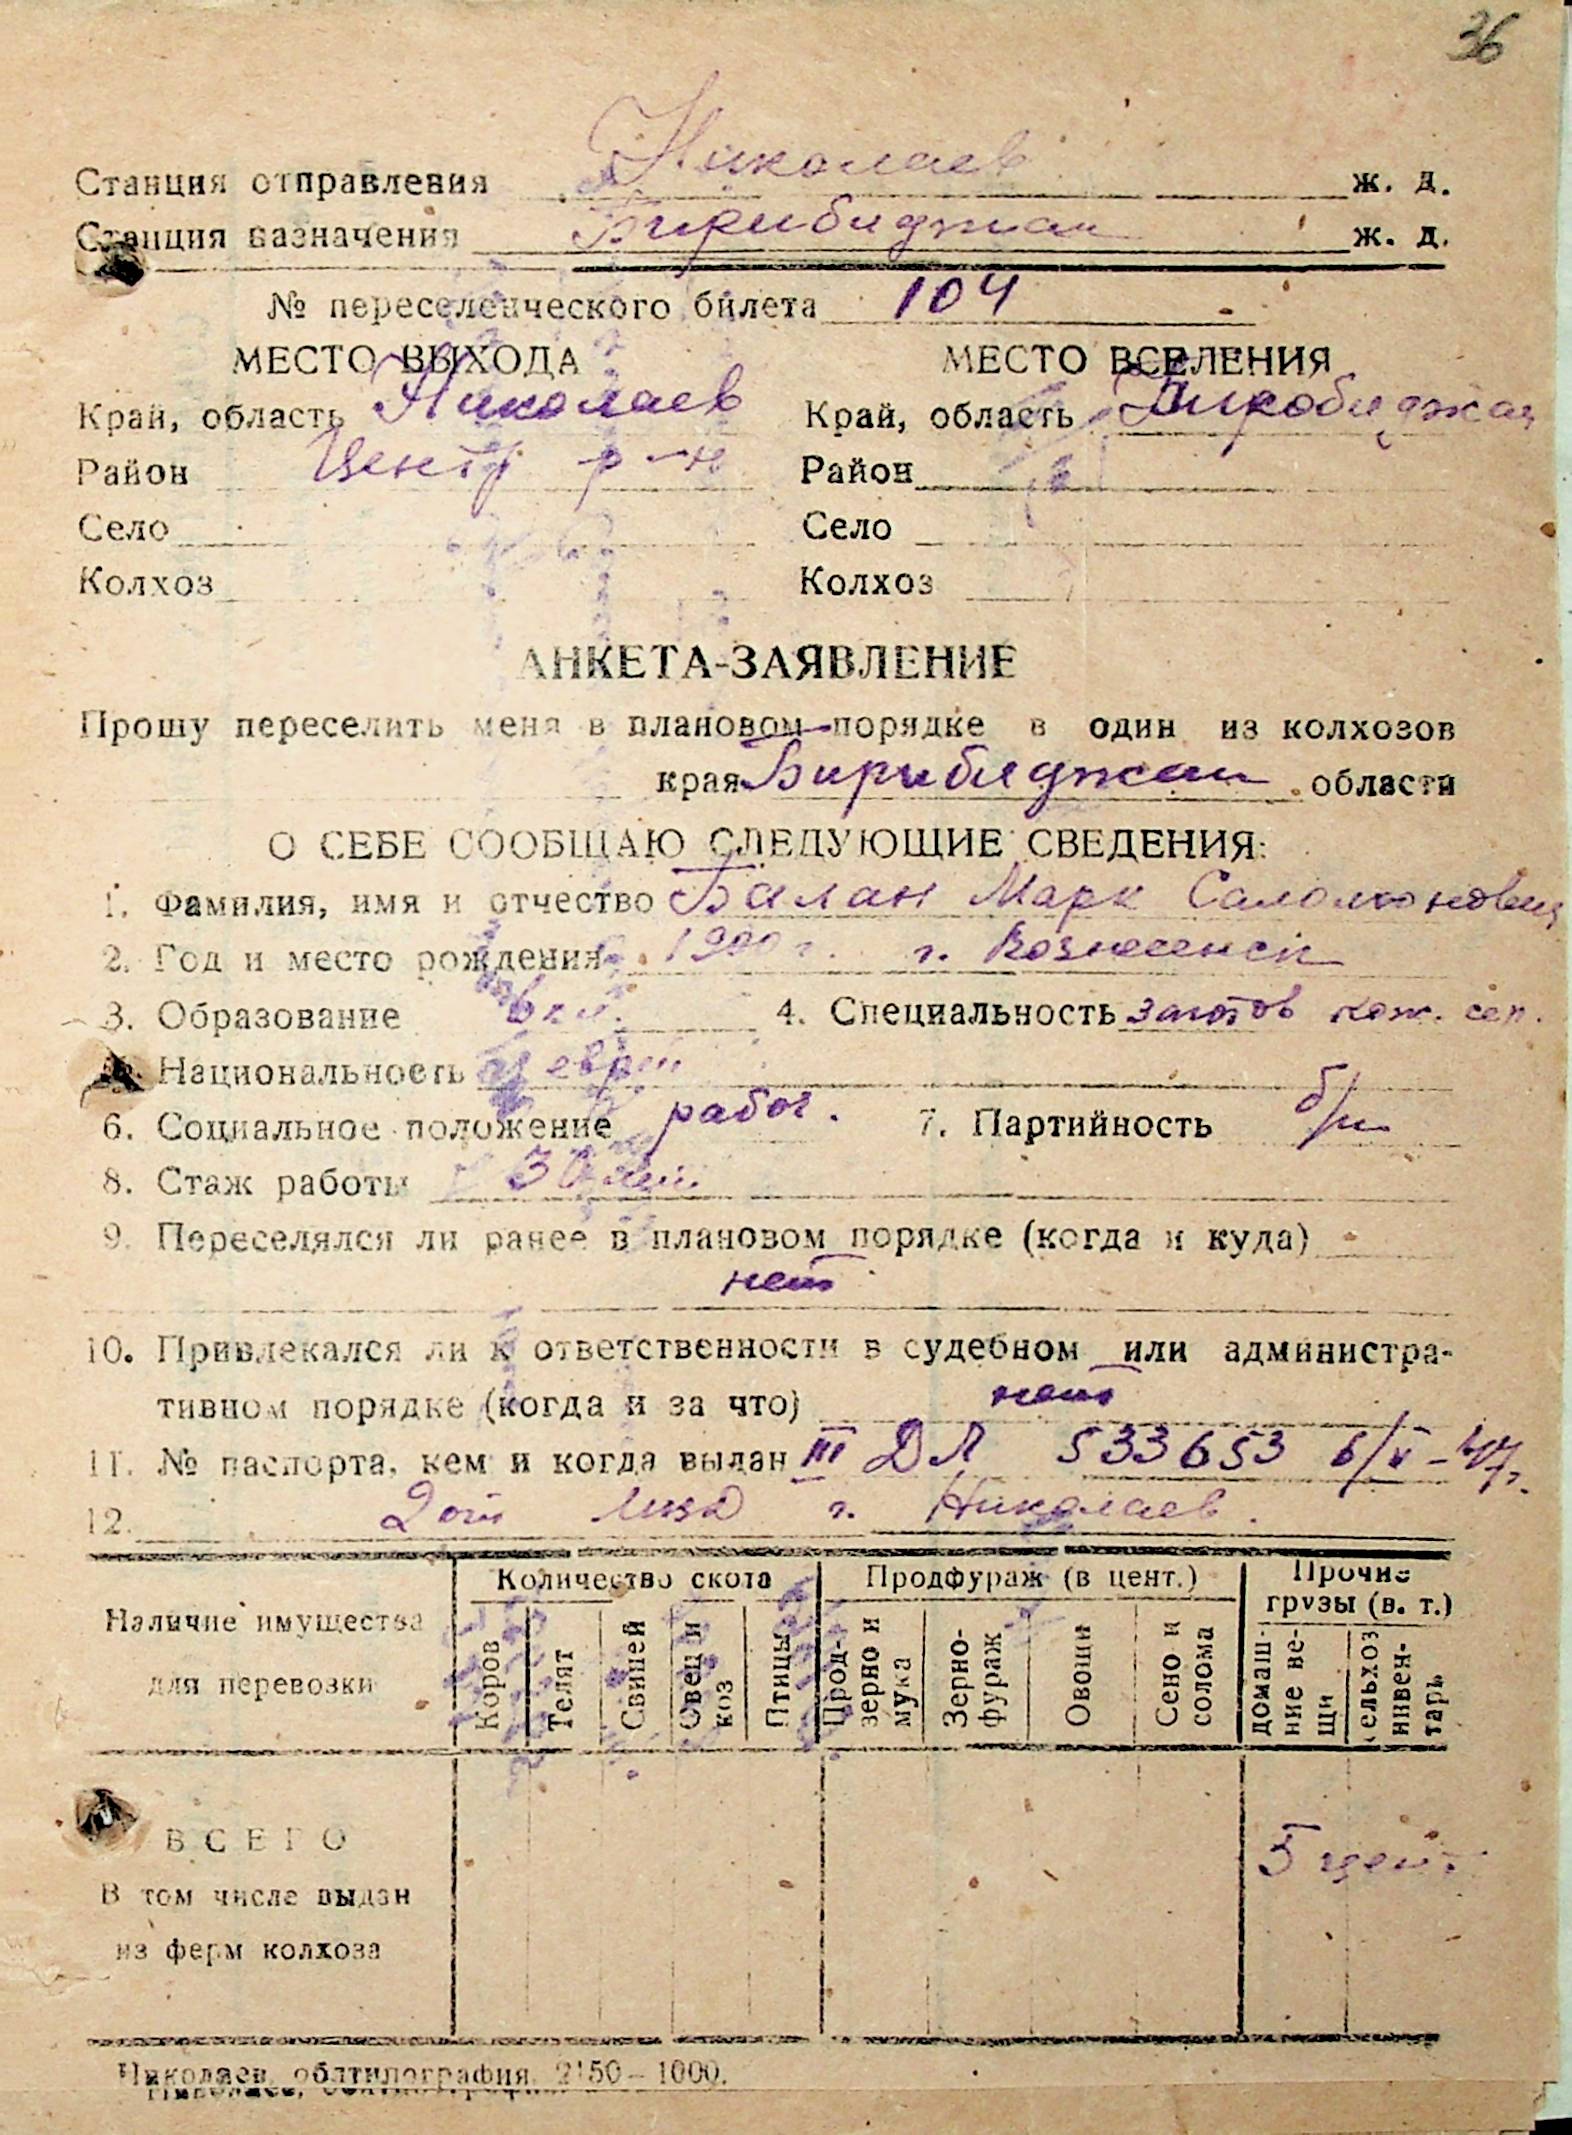 36
Станция отправления Николаев ж. д.
Станция назначения Биробиджан ж. д.
№ переселенческого билета 104
МЕСТО ВЫХОДА МЕСТО ВСЕЛЕНИЯ
Край, область Николаев Край, область Биробиджан
Район Центр р-н Район
Село Село
Колхоз Колхоз
АНКЕТА-ЗАЯВЛЕНИЕ
Прошу переселить меня в плановом порядке в один из колхозов
края Биробиджан области
О СЕБЕ СООБЩАЮ СЛЕДУЮЩИЕ СВЕДЕНИЯ:
1. Фамилия, имя и отчество Балан Марк Саломонович
2. Год и место рождения 1900 г. г. Вознесенск
3. Образование 4. Специальность заготов кож. сел.
Национальность еврей
6. Социальное положение рабоч. 7. Партийность б/п
8. Стаж работы 30 лет
9. Переселялся ли ранее в плановом порядке (когда и куда)
нет
10. Привлекался ли к ответственности в судебном или администра-
тивном порядке (когда и за что) нет
11. № паспорта, кем и когда выдан III ДЛ 533653 6/V-47г.
12. 2 от г. Николаев.
Наличие имущества для перевозки
Количество скота Продфураж (в цент.) Прочие грузы (в. т.)
Коров Телят Свиней Овец и коз Птицы Прод-зерно и мука Зерно-фураж Овощи Сено и солома домаш-ние ве-щи сельхоз инвен-тарь
ВСЕГО 5 цент.
В том числе выдан
из ферм колхоза
Николаев, облтипография 2150—1000.